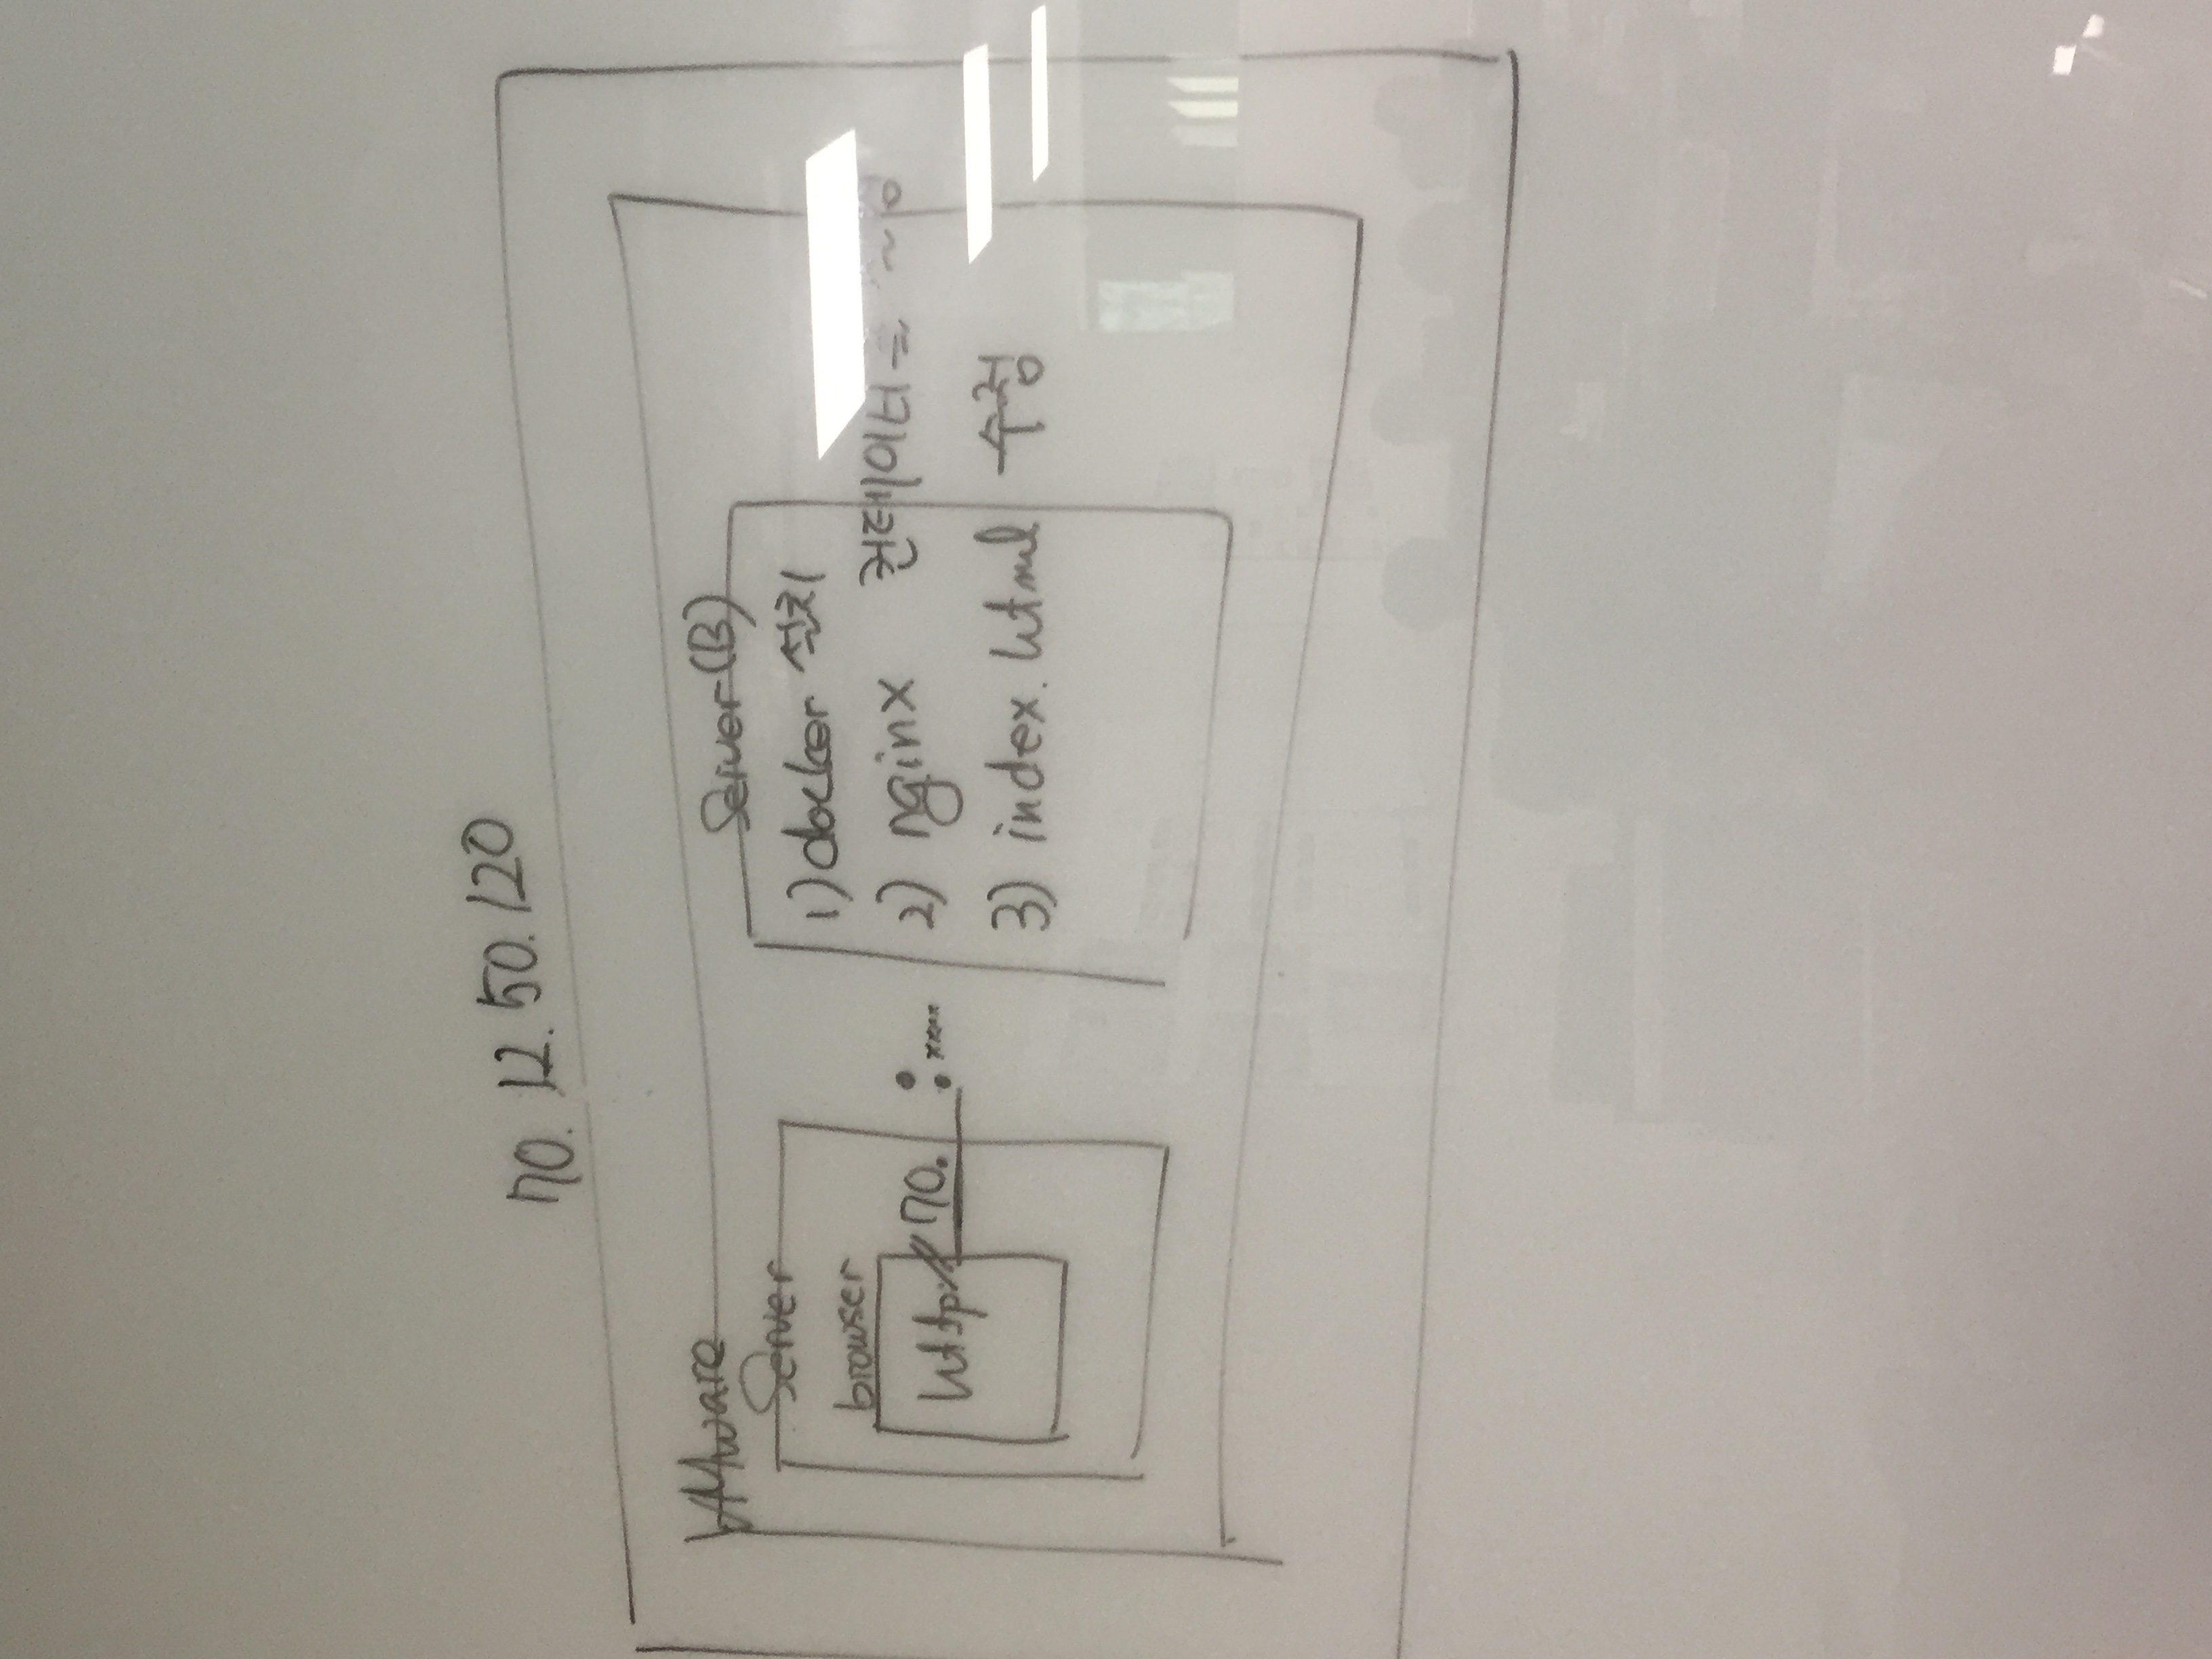 70. 12. 50. 120
VMware
Server
browser
http://70. : xxxx
Server(B)
1) docker 설치
2) nginx 컨테이너
3) index.html 수정